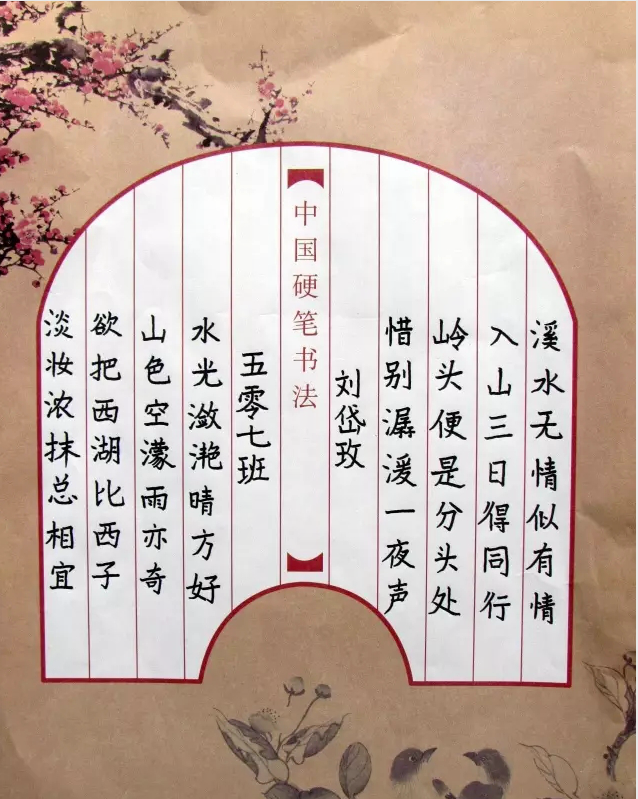 溪水无情似有情
入山三日得同行
岭头便是分头处
惜别潺湲一夜声
刘岱玫
中国硬笔书法
五零七班
水光潋滟晴方好
山色空濛雨亦奇
欲把西湖比西子
淡妆浓抹总相宜